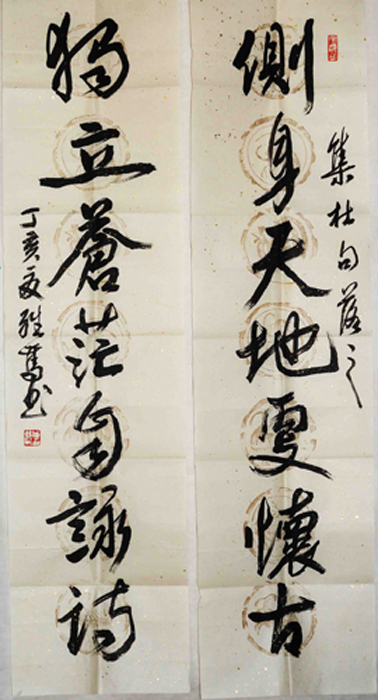 側身天地更懷古
集杜句落之
獨立蒼茫自詠詩
丁亥夏
書